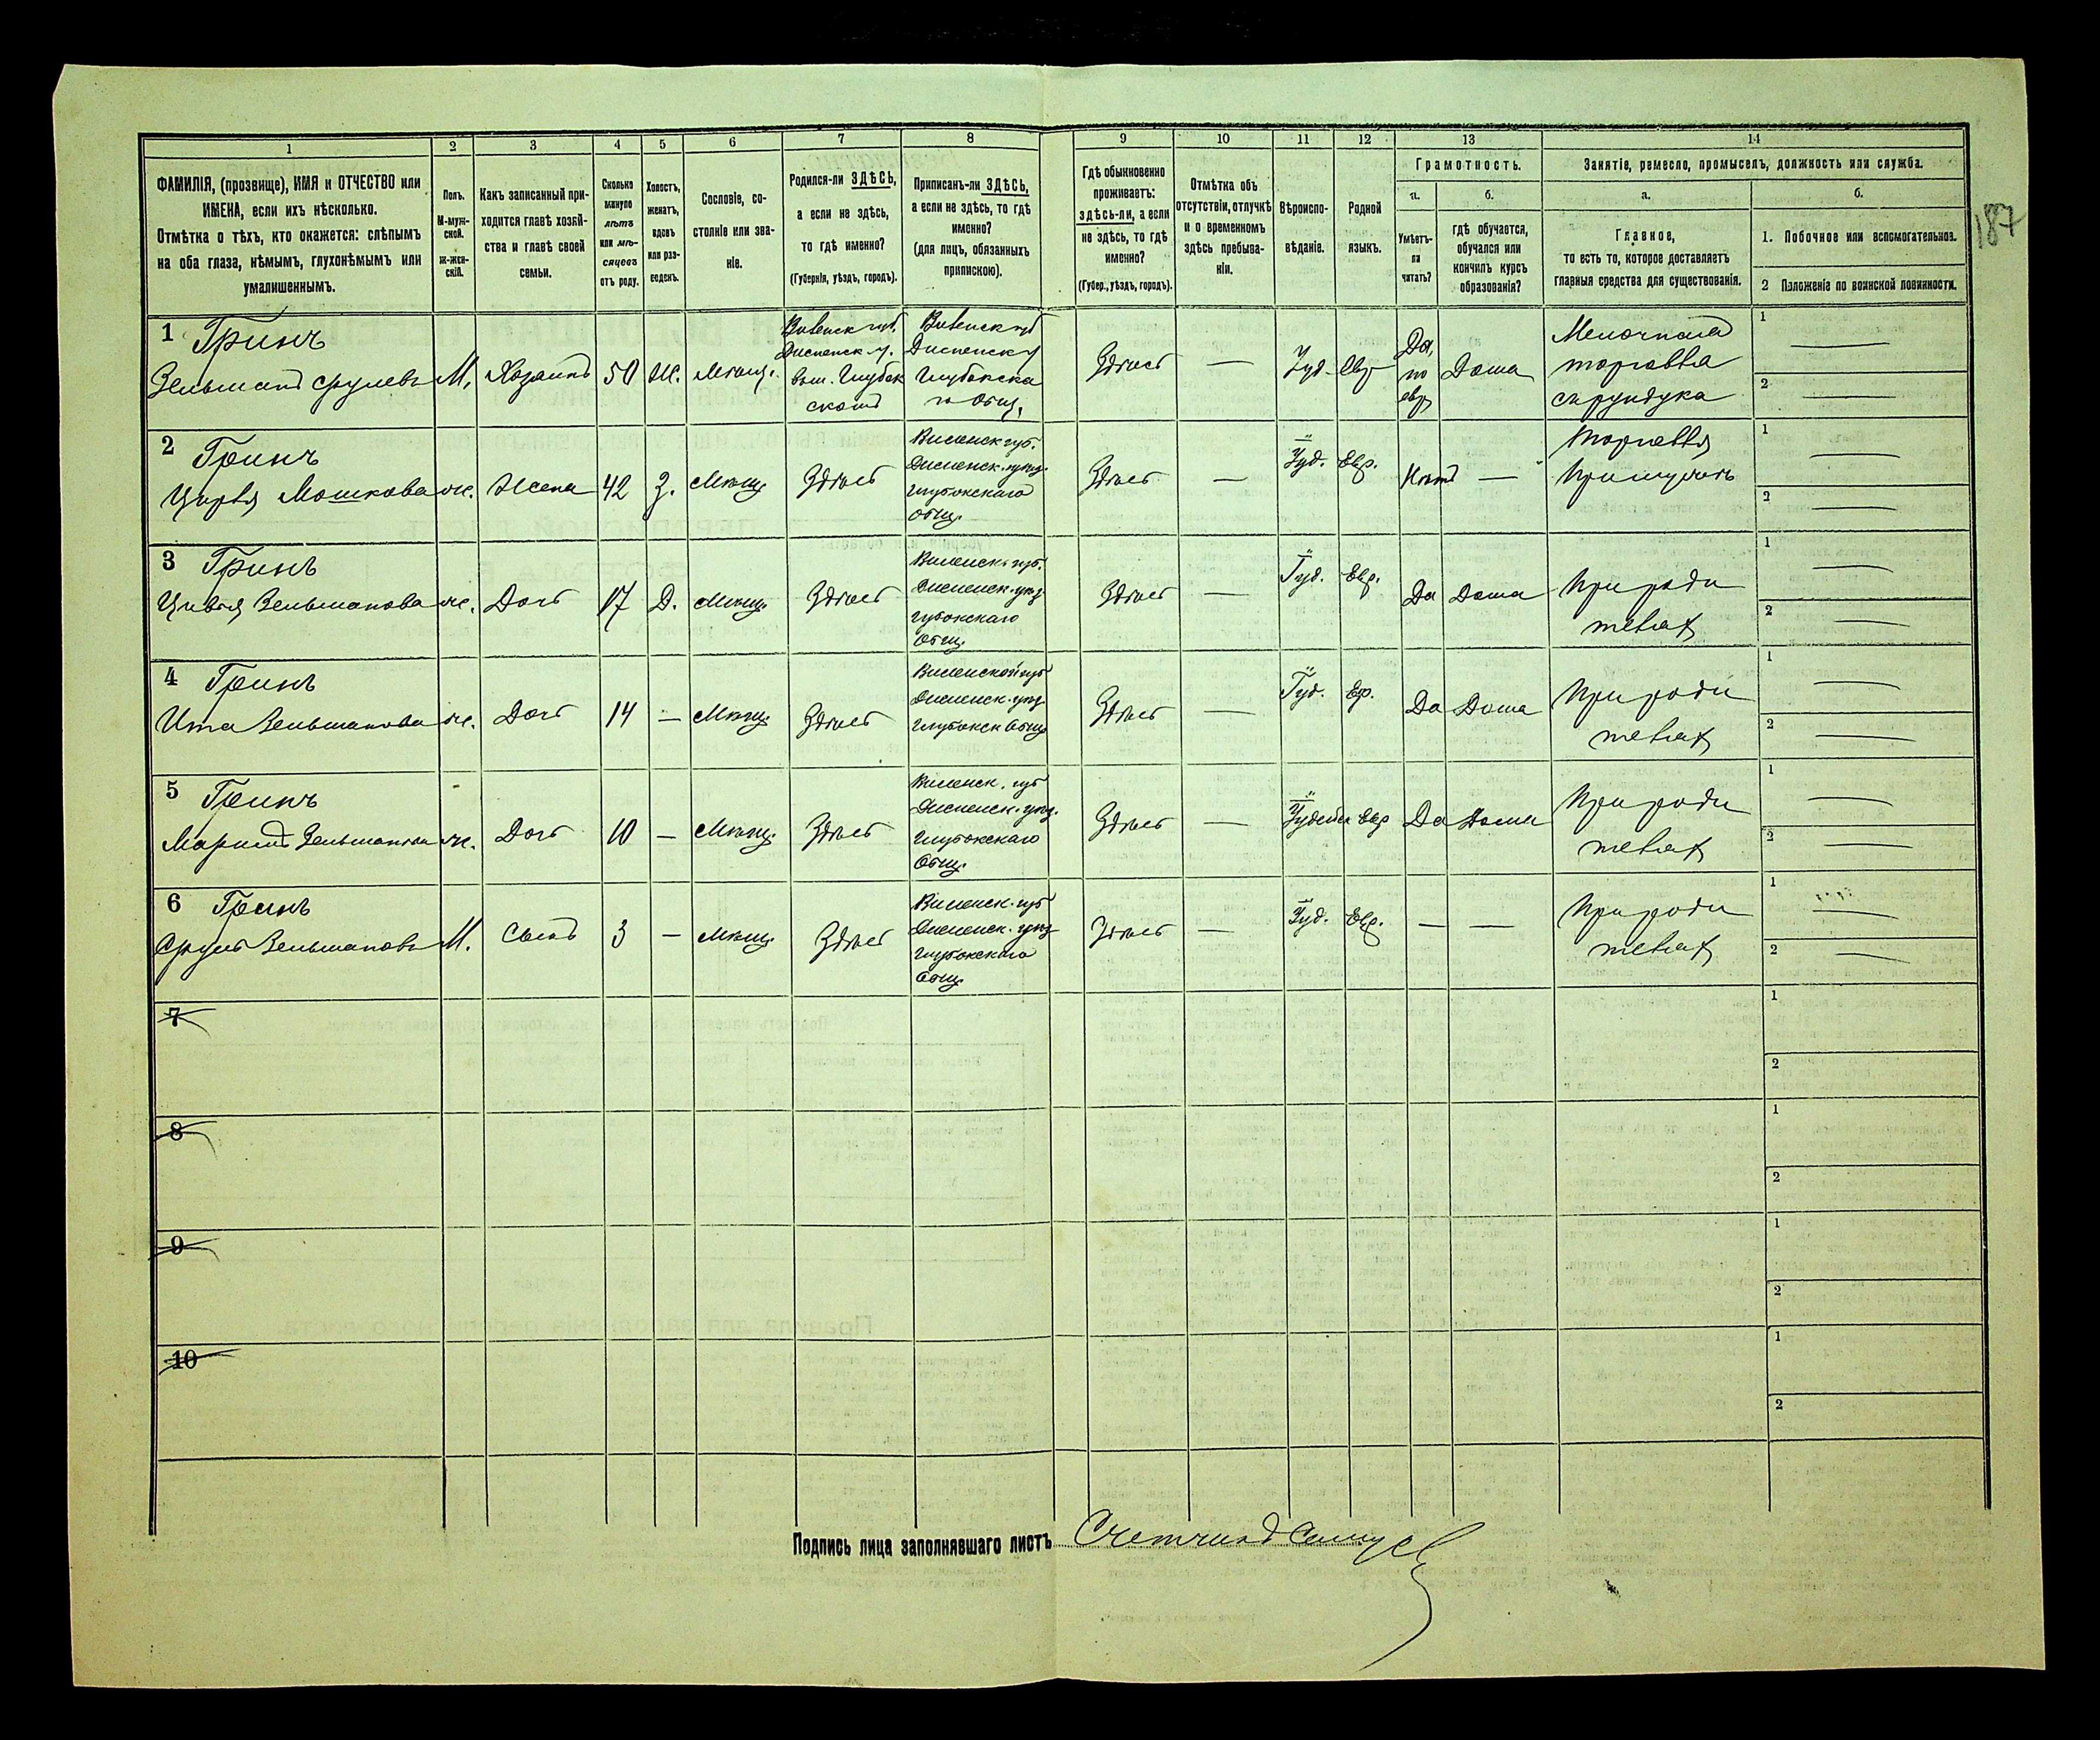 187
1 2 3 4 5 6 7 8 9 10 11 12 13 14
ФАМИЛІЯ, (прозвище), ИМЯ и ОТЧЕСТВО или
ИМЕНА, если ихъ нѣсколько.
Отмѣтка о тѣхъ, кто окажется: слѣпымъ
на оба глаза, нѣмымъ, глухонѣмымъ или
умалишеннымъ.
Полъ.
М-муж-
ской.
ж-жен-
скій.
Какъ записанный при-
ходится главѣ хозяй-
ства и главѣ своей
семьи.
Сколько
минуло
лѣтъ
или мѣ-
сяцевъ
отъ роду.
Холостъ,
женатъ,
вдовъ
или раз-
веденъ.
Сословіе, со-
стояніе или зва-
ніе.
Родился-ли ЗДѢСЬ,
а если не здѣсь,
то гдѣ именно?
(Губернія, уѣздъ, городъ).
Приписанъ-ли ЗДѢСЬ,
а если не здѣсь, то гдѣ
именно?
(для лицъ, обязанныхъ
припискою).
Гдѣ обыкновенно
проживаетъ:
здѣсь-ли, а если
не здѣсь, то гдѣ
именно?
(Губер., уѣздъ, городъ).
Отмѣтка объ
отсутствіи, отлучкѣ
и о временномъ
здѣсь пребыва-
ніи.
Вѣроиспо-
вѣданіе.
Родной
языкъ.
Грамотность.
а.
Умѣетъ-
ли
читать?
б.
гдѣ обучается,
обучался или
кончилъ курсъ
образованія?
Занятіе, ремесло, промыселъ, должность или служба.
а.
Главное,
то есть то, которое доставляетъ
главныя средства для существованія.
б.
1. Побочное или вспомогательное.
2 Положеніе по воинской повинности.
1 Гринъ
Зельманъ Срулевъ М. Хозяинъ 50 Ж. Мѣщ.
Виленск губ.
Дисненск у.
Глубок
скомъ
Виленск губ
Дисненск у
Глубокска
го Общ.
Здѣсь — Іуд. Евр
Да,
по
евр
Дома
Мелочная
торговля
1 —
2 —
2 Гринъ
Мошкова ж. Жена 42 З. Мѣщ. Здѣсь
Виленск губ.
Дисненск. уѣзд.
Глубокскаго
общ.
Здѣсь — Іуд. Евр. Нѣтъ —
торговля
При мужѣ
1 —
2 —
3 Гринъ
Цивья Зельманова ж. Дочь 17 Д. Мѣщ. Здѣсь
Виленск. губ.
Дисненск. уѣзд
глубокскаго
общ.
Здѣсь — Іуд. Евр. Да Дома
При роди
теляхъ
1 —
2 —
4 Гринъ
Ита Зельманова ж. Дочь 14 — Мѣщ. Здѣсь
Виленской губ
Дисненск. уѣзд
Глубокск Общ.
Здѣсь — Іуд. Ер. Да Дома
При роди
теляхъ
1 —
2 —
5 Гринъ
Зельманова ж. Дочь 10 — Мѣщ. Здѣсь
Виленск. губ
Дисненск. уѣзд.
Глубокскаго
Общ.
Здѣсь — Евр Да Дома
При роди
теляхъ
1 —
2 —
6 Гринъ
Сруль Зельмановъ М. Сынъ 3 — Мѣщ. Здѣсь
Виленск. губ
Дисненск. уѣзд
Глубокскаго
Общ.
Здѣсь — Іуд. Евр. — —
При роди
теляхъ
1 —
2 —
7
1
2
8
1
2
9
1
2
10
1
2
Подпись лица заполнявшаго листъ Счетчикъ